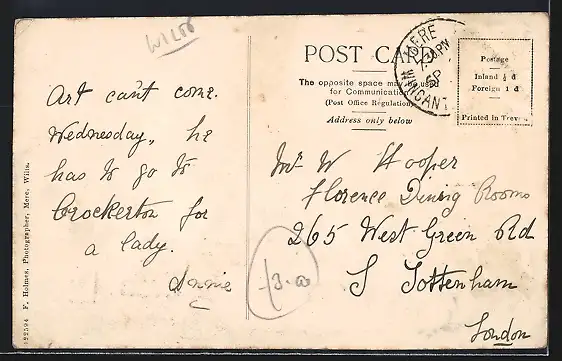 WILTS
POST CARD
The opposite space may be used
for Communication
(Post Office Regulation)
Address only below
MERE
7.30PM
SP
WINCANT
Postage
Inland ½ d
Foreign 1 d
Printed in Treves
Art can't come.
Wednesday, he
has to go to
Crockerton for
a lady.
Annie
Mr W Hooper
Florence Dining Rooms
265 West Green Rd
S Tottenham
London
122594 F. Holmes, Photographer, Mere, Wilts.